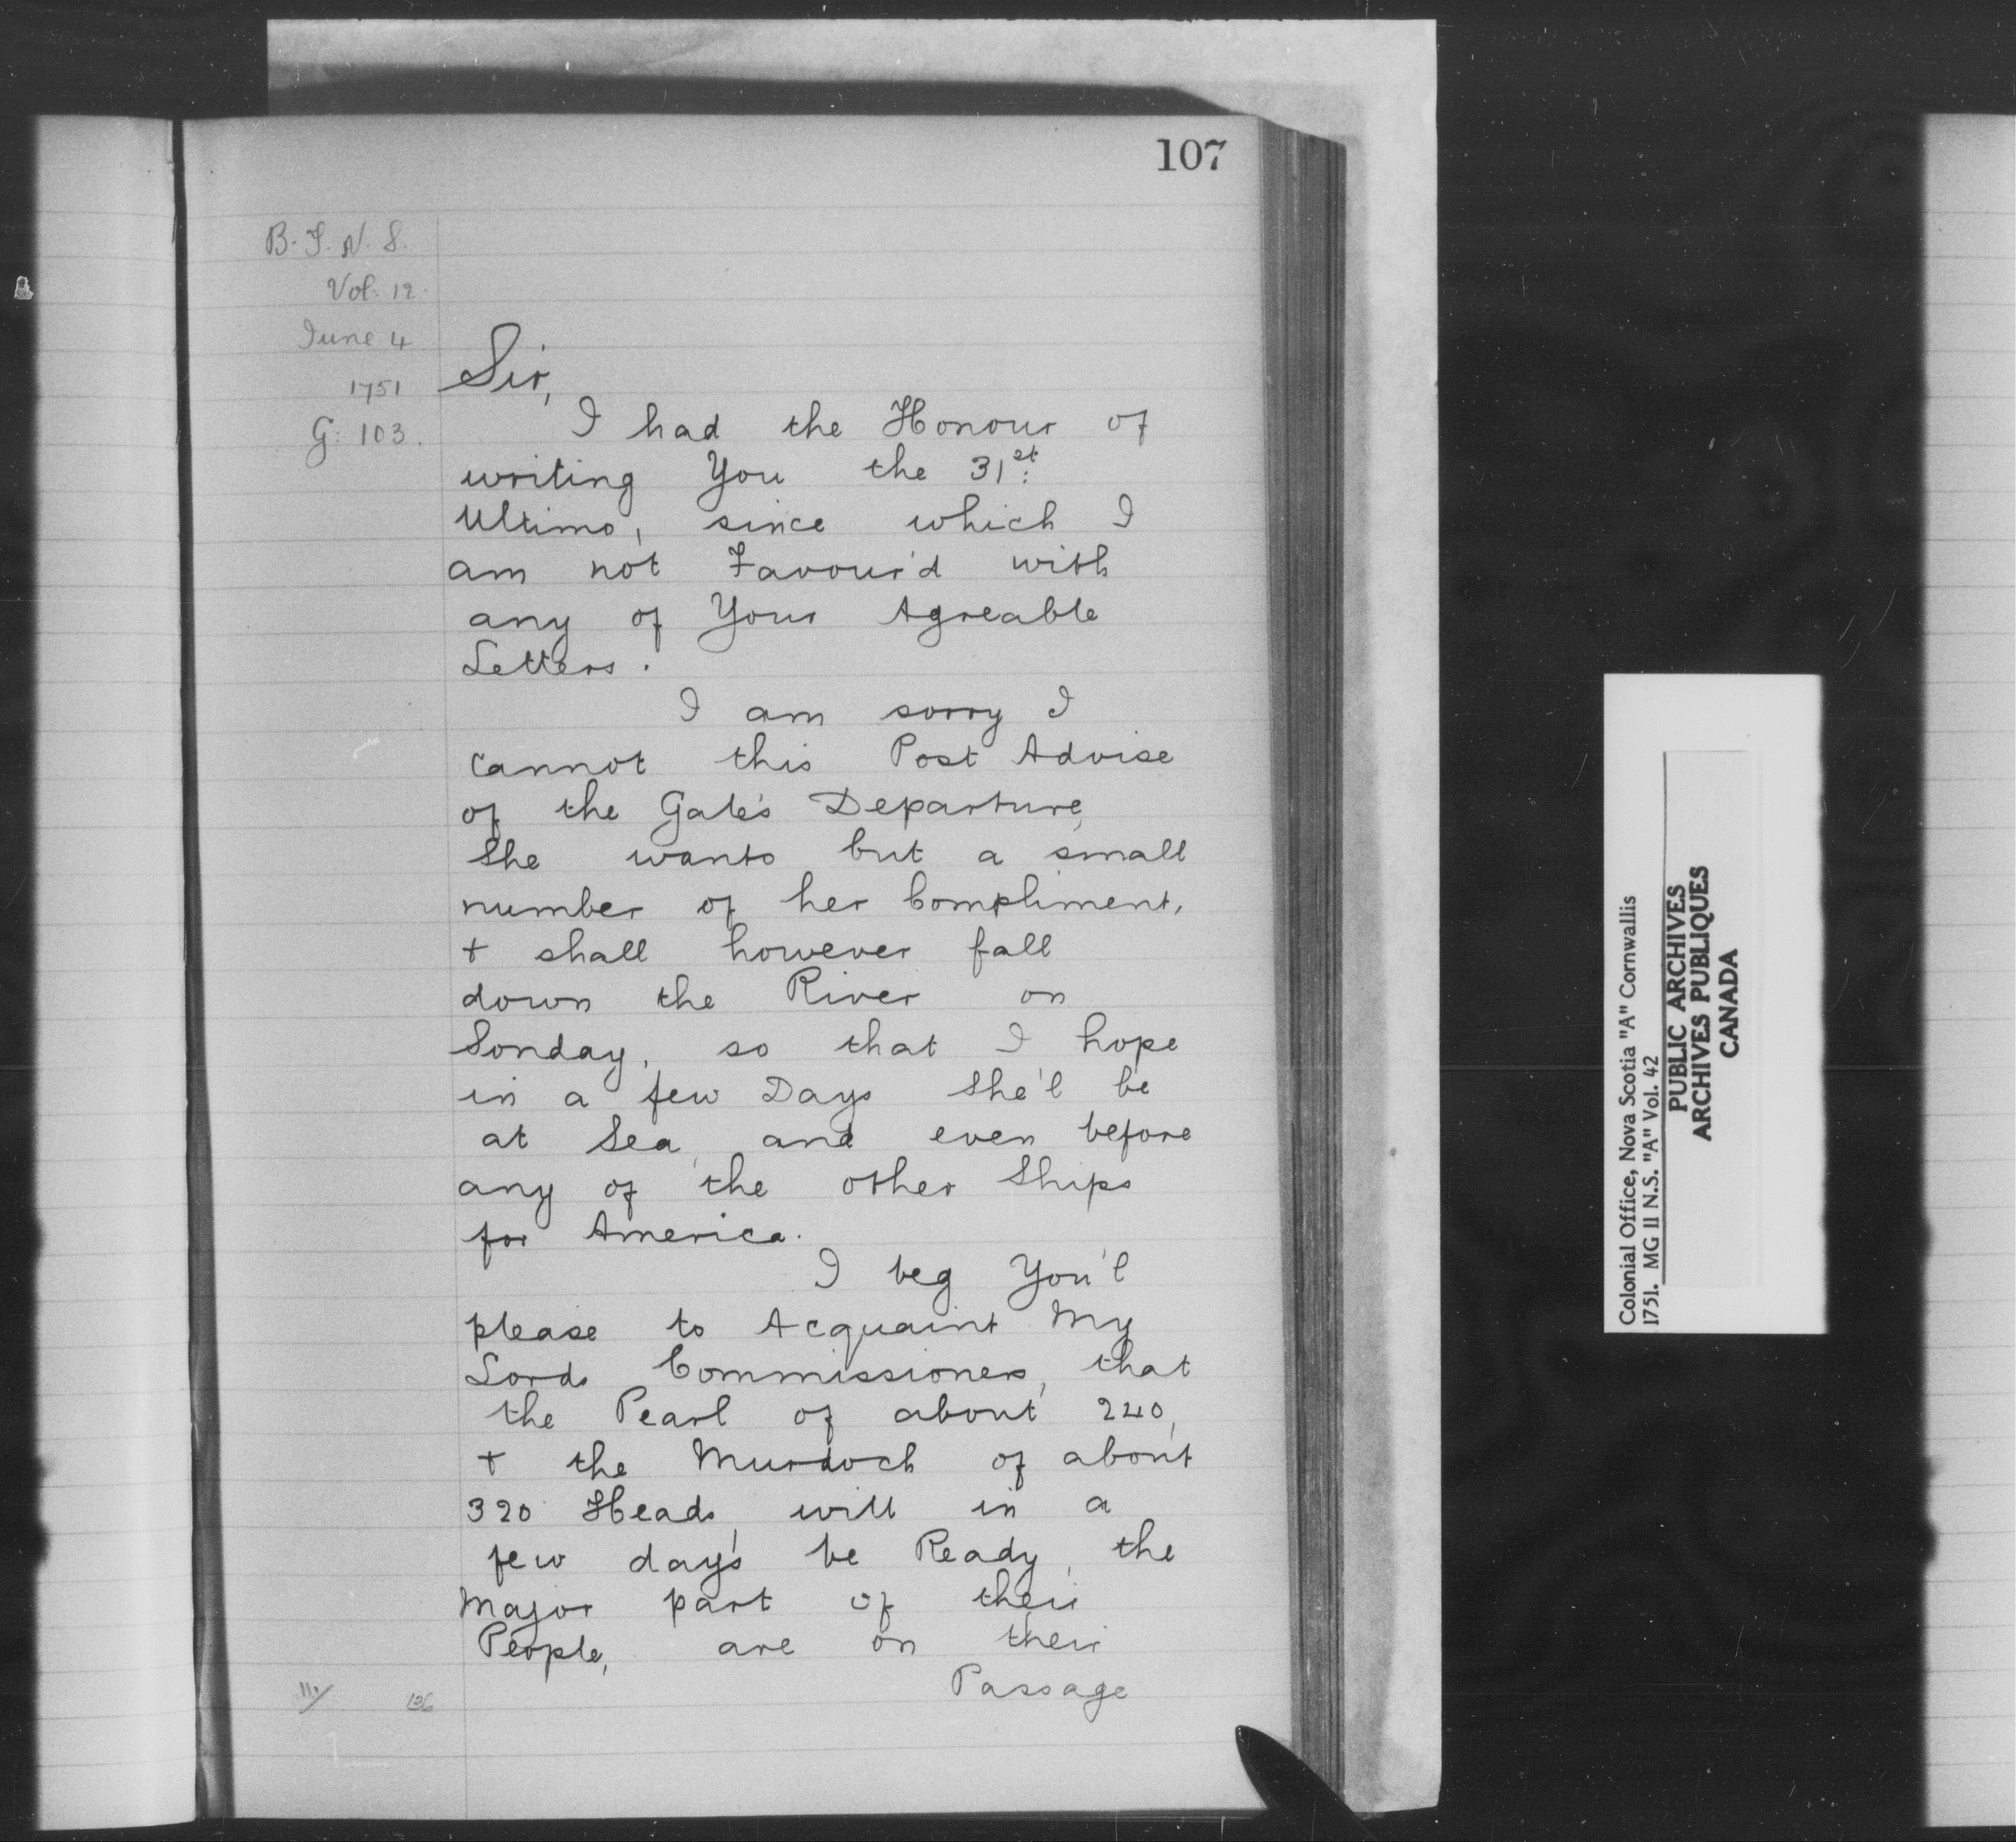 107
B. T. N. S.
Vol. 12.
June 4
1751
G: 103.
Sir,
I had the Honour of
writing You the 31st:
Ultimo, since which I
am not Favour'd with
any of Your Agreable
Letters.
I am sorry I
cannot this Post Advise
of the Gale's Departure,
She wants but a small
number of her Compliment,
+ shall however fall
down the River on
Sonday, so that I hope
in a few Days She'l be
at Sea, and even before
any of the other Ships
for America.
I beg You'l
please to Acquaint My
Lords Commissioners, that
the Pearl of about 240,
+ the Murdoch of about
320 Heads, will in a
few day's be Ready, the
Major part of their
People, are on their
Passage
11./
Colonial Office, Nova Scotia "A" Cornwallis
1751. MG II N.S. "A" Vol. 42
PUBLIC ARCHIVES
ARCHIVES PUBLIQUES
CANADA